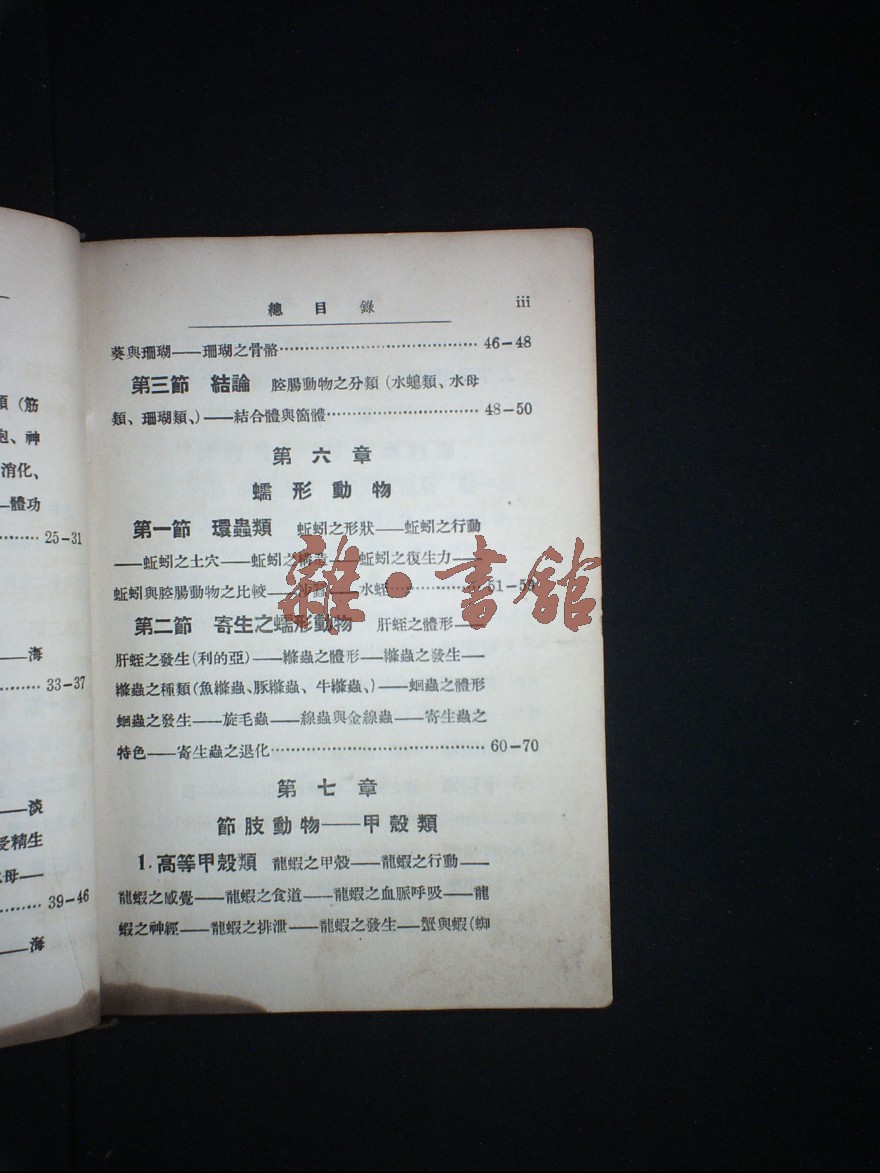 類（筋
胞、神
消化、
—體功
25-31
——海
33-37
——淡
受精生
母——
39-46
——海
總目錄 iii
葵與珊瑚——珊瑚之骨骼 46-48
第三節 結論 腔腸動物之分類（水螅類、水母
類、珊瑚類、）——結合體與箇體 48-50
第六章
蠕形動物
第一節 環蟲類 蚯蚓之形狀——蚯蚓之行動
——蚯蚓之土穴——蚯蚓之構造——蚯蚓之復生力——
蚯蚓與腔腸動物之比較——沙蠶——水蛭 51-59
第二節 寄生之蠕形動物 肝蛭之體形——
肝蛭之發生（利的亞）——縧蟲之體形——縧蟲之發生——
縧蟲之種類（魚縧蟲、豚縧蟲、牛縧蟲、）——蛔蟲之體形
蛔蟲之發生——旋毛蟲——線蟲與金線蟲——寄生蟲之
特色——寄生蟲之退化 60-70
第七章
節肢動物——甲殼類
1.高等甲殼類 龍蝦之甲殼——龍蝦之行動——
龍蝦之感覺——龍蝦之食道——龍蝦之血脈呼吸——龍
蝦之神經——龍蝦之排泄——龍蝦之發生——蟹與蝦（蜘
雜·書館